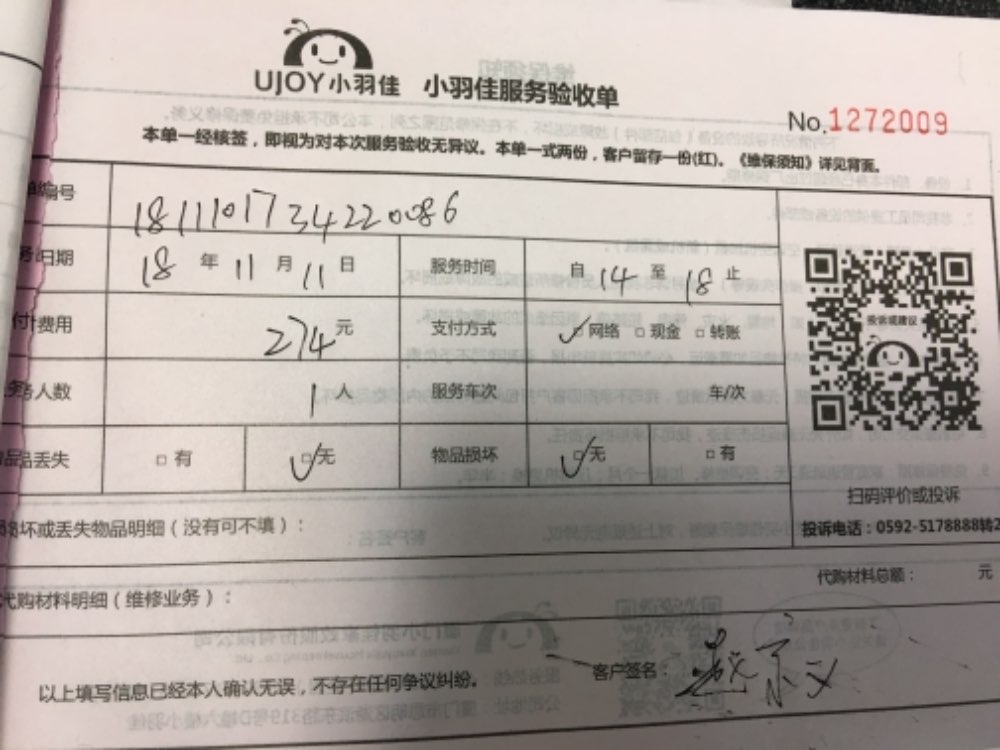 UJOY小羽佳 小羽佳服务验收单
No.1272009
本单一经核签，即视为对本次服务验收无异议。本单一式两份，客户留存一份(红)。《维保须知》详见背面。
编号 1811101734220086
日期 18年11月11日 服务时间 自14至18止
付费用 274元 支付方式 ✓□网络 □现金 □转账
务人数 1人 服务车次 车/次
品丢失 □有 ✓□无 物品损坏 ✓□无 □有
投诉或建议
扫码评价或投诉
投诉电话：0592-5178888转2
坏或丢失物品明细（没有可不填）：
代购材料总额： 元
代购材料明细（维修业务）：
以上填写信息已经本人确认无误，不存在任何争议纠纷。 客户签名：